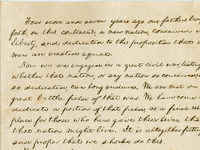 Four score and seven years ago our fathers brou
forth, on this continent, a new nation, conceived in
Liberty, and dedication to the proposition that a
men are creative equal.
Now we are engaged in a great civil war, testing
whether that nation, or any nation so conceived
so dedication, can long endure. We are met on
great battle field of that war. We have come
dedicate a portion of that field, as a final rest
place for those who gave their lives that
that nation might live. It is altogether fitting
and proper that we should do this.